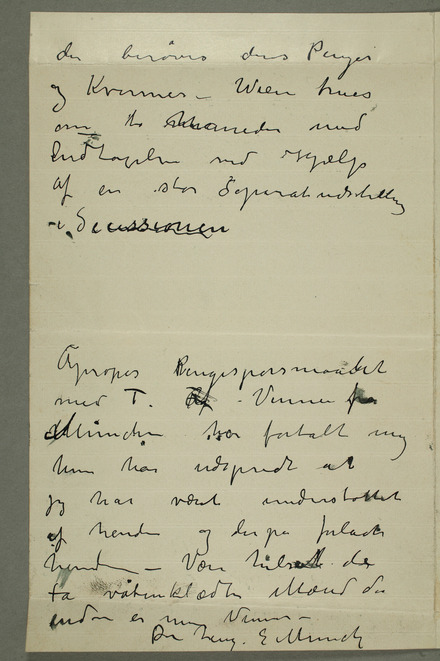 der berøves deres Penger
og Kvinner – Wien trues
om to Maaneder med
Indtagelse ved Hjælp
af en stor Separatudstilling
i Secessionen
Apropos Pengespørsmaalet
med T. – Venner fra
München har fortalt mig
hun har udspredt at
jeg har været understøttet
af hende og derpå forladt
hende – Vær hilset de
to våbenklædte Mænd du
endnu er min Ven –
Din heng. E Munch